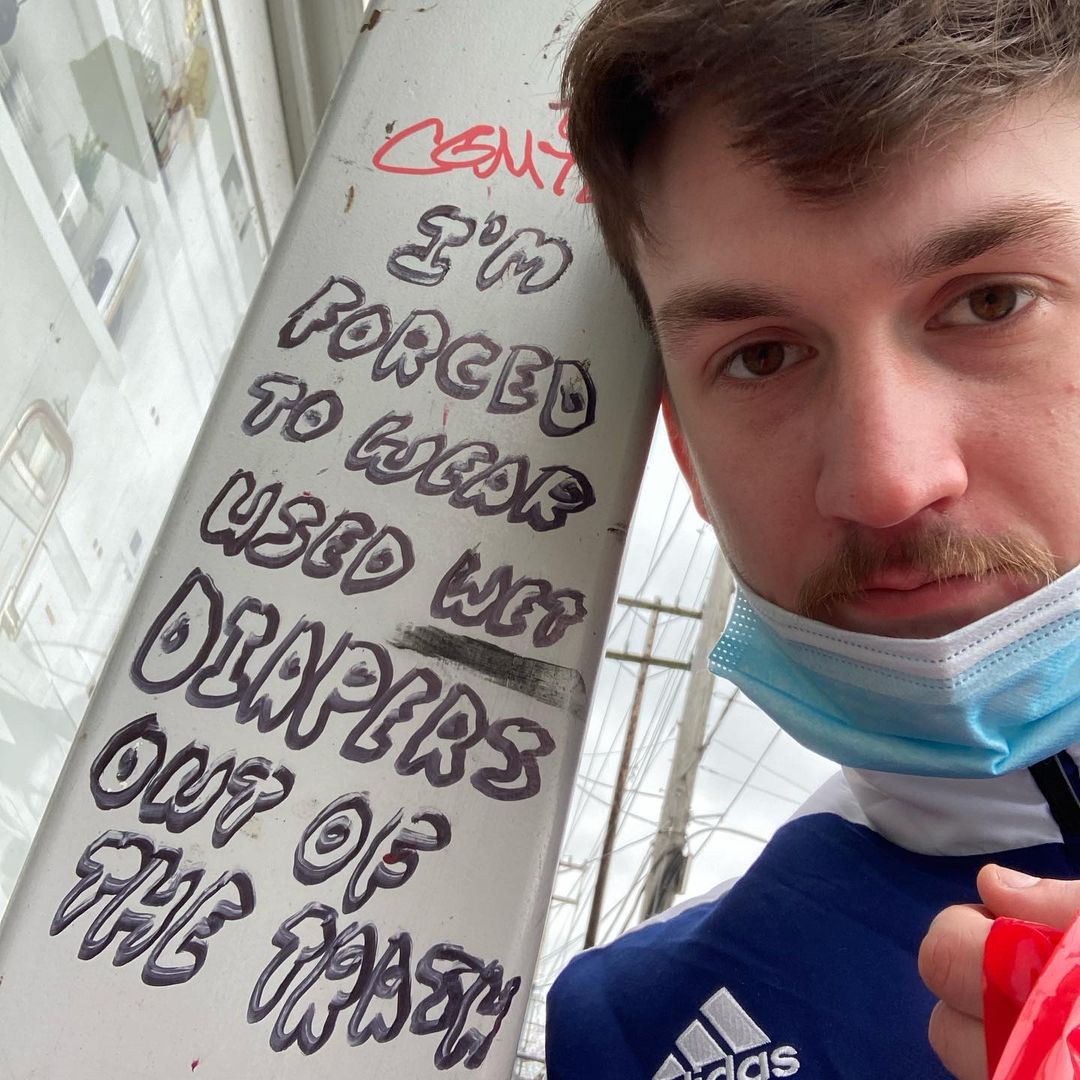 I'M
FORCED
TO WEAR
USED WET
DIAPERS
OUT OF
THE TRASH
adidas